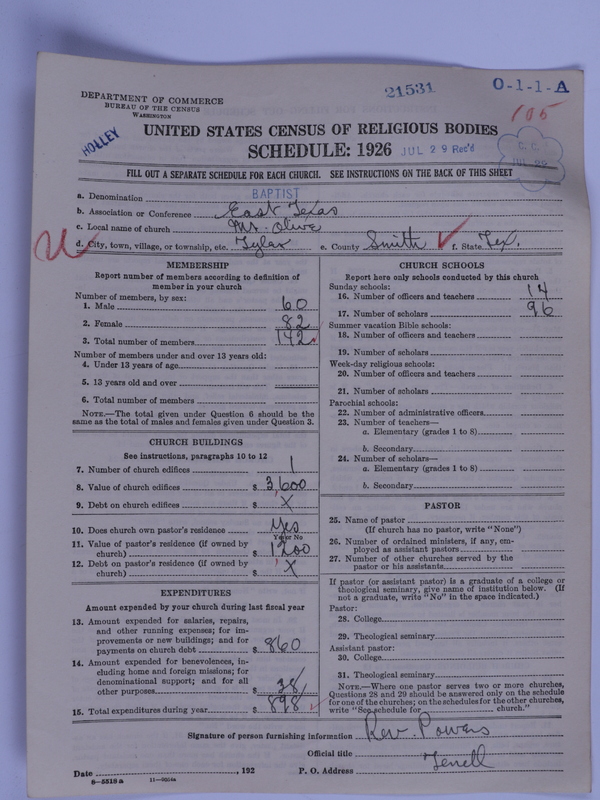 21531 O-1-1-A
105
DEPARTMENT OF COMMERCE
BUREAU OF THE CENSUS
WASHINGTON
HOLLEY
UNITED STATES CENSUS OF RELIGIOUS BODIES
SCHEDULE: 1926 JUL 29 Rec'd
C. C.
JUL 29
FILL OUT A SEPARATE SCHEDULE FOR EACH CHURCH. SEE INSTRUCTIONS ON THE BACK OF THIS SHEET
a. Denomination BAPTIST
b. Association or Conference East Texas
c. Local name of church Mt. Olive
d. City, town, village, or township, etc. Tyler e. County Smith f. State Tex.
MEMBERSHIP
Report number of members according to definition of
member in your church
Number of members, by sex:
1. Male 60
2. Female 82
3. Total number of members 142
Number of members under and over 13 years old:
4. Under 13 years of age
5. 13 years old and over
6. Total number of members
NOTE.—The total given under Question 6 should be the
same as the total of males and females given under Question 3.
CHURCH BUILDINGS
See instructions, paragraphs 10 to 12
7. Number of church edifices 1
8. Value of church edifices $ 3,600
9. Debt on church edifices $ X
10. Does church own pastor's residence Yes
Yes or No
11. Value of pastor's residence (if owned by
church) $ 1200
12. Debt on pastor's residence (if owned by
church) $ X
EXPENDITURES
Amount expended by your church during last fiscal year
13. Amount expended for salaries, repairs,
and other running expenses; for im-
provements or new buildings; and for
payments on church debt $ 860
14. Amount expended for benevolences, in-
cluding home and foreign missions; for
denominational support; and for all
other purposes $ 38
15. Total expenditures during year $ 898
CHURCH SCHOOLS
Report here only schools conducted by this church
Sunday schools:
16. Number of officers and teachers 14
17. Number of scholars 96
Summer vacation Bible schools:
18. Number of officers and teachers
19. Number of scholars
Week-day religious schools:
20. Number of officers and teachers
21. Number of scholars
Parochial schools:
22. Number of administrative officers
23. Number of teachers—
a. Elementary (grades 1 to 8)
b. Secondary
24. Number of scholars—
a. Elementary (grades 1 to 8)
b. Secondary $
PASTOR
25. Name of pastor
(If church has no pastor, write "None")
26. Number of ordained ministers, if any, em-
ployed as assistant pastors
27. Number of other churches served by the
pastor or his assistants
If pastor (or assistant pastor) is a graduate of a college or
theological seminary, give name of institution below. (If
not a graduate, write "No" in the space indicated.)
Pastor:
28. College
29. Theological seminary
Assistant pastor:
30. College
31. Theological seminary
NOTE.—Where one pastor serves two or more churches,
Questions 28 and 29 should be answered only on the schedule
for one of the churches; on the schedules for the other churches,
write "See schedule for church."
Signature of person furnishing information Rev. Powers
Official title
Date , 192 P. O. Address Terrell
8-5518 a